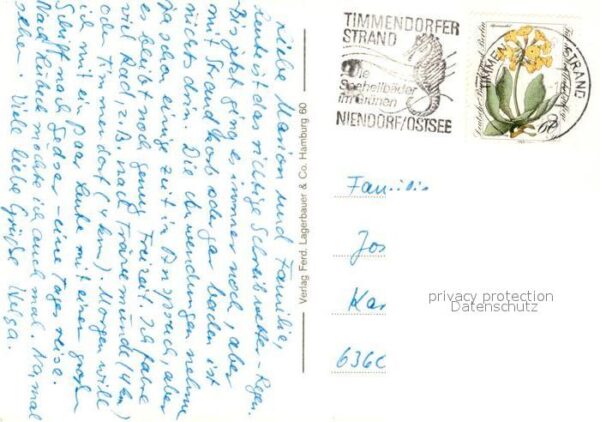 Liebe Marion und Familie,
heute ist das richtige Schreibwetter - Regen.
Bis jetzt ging es immer noch, aber
mit Strandkorb oder gar baden ist
nichts drin. Die Anwendungen nehmen
ja schon einige Zeit in Anspruch, aber
es bleibt noch genug Freizeit. Ich fahre
viel Rad, z.B. nach Travemünde (4 km)
oder Timmendorf (4 km). Morgen will
ich mit ein paar Leuten mit einem großen
Schiff nach - eine Tagesreise.
Nach Lübeck möchte ich auch mal. Na, mal
sehen. Viele liebe Grüße Helga.
Verlag Ferd. Lagerbauer & Co. Hamburg 60
TIMMENDORFER
STRAND
Die
Seeheilbäder
im Grünen
NIENDORF/OSTSEE
TIMMEN STRAND
Familie
Jos
Kar
636
privacy protection
Datenschutz